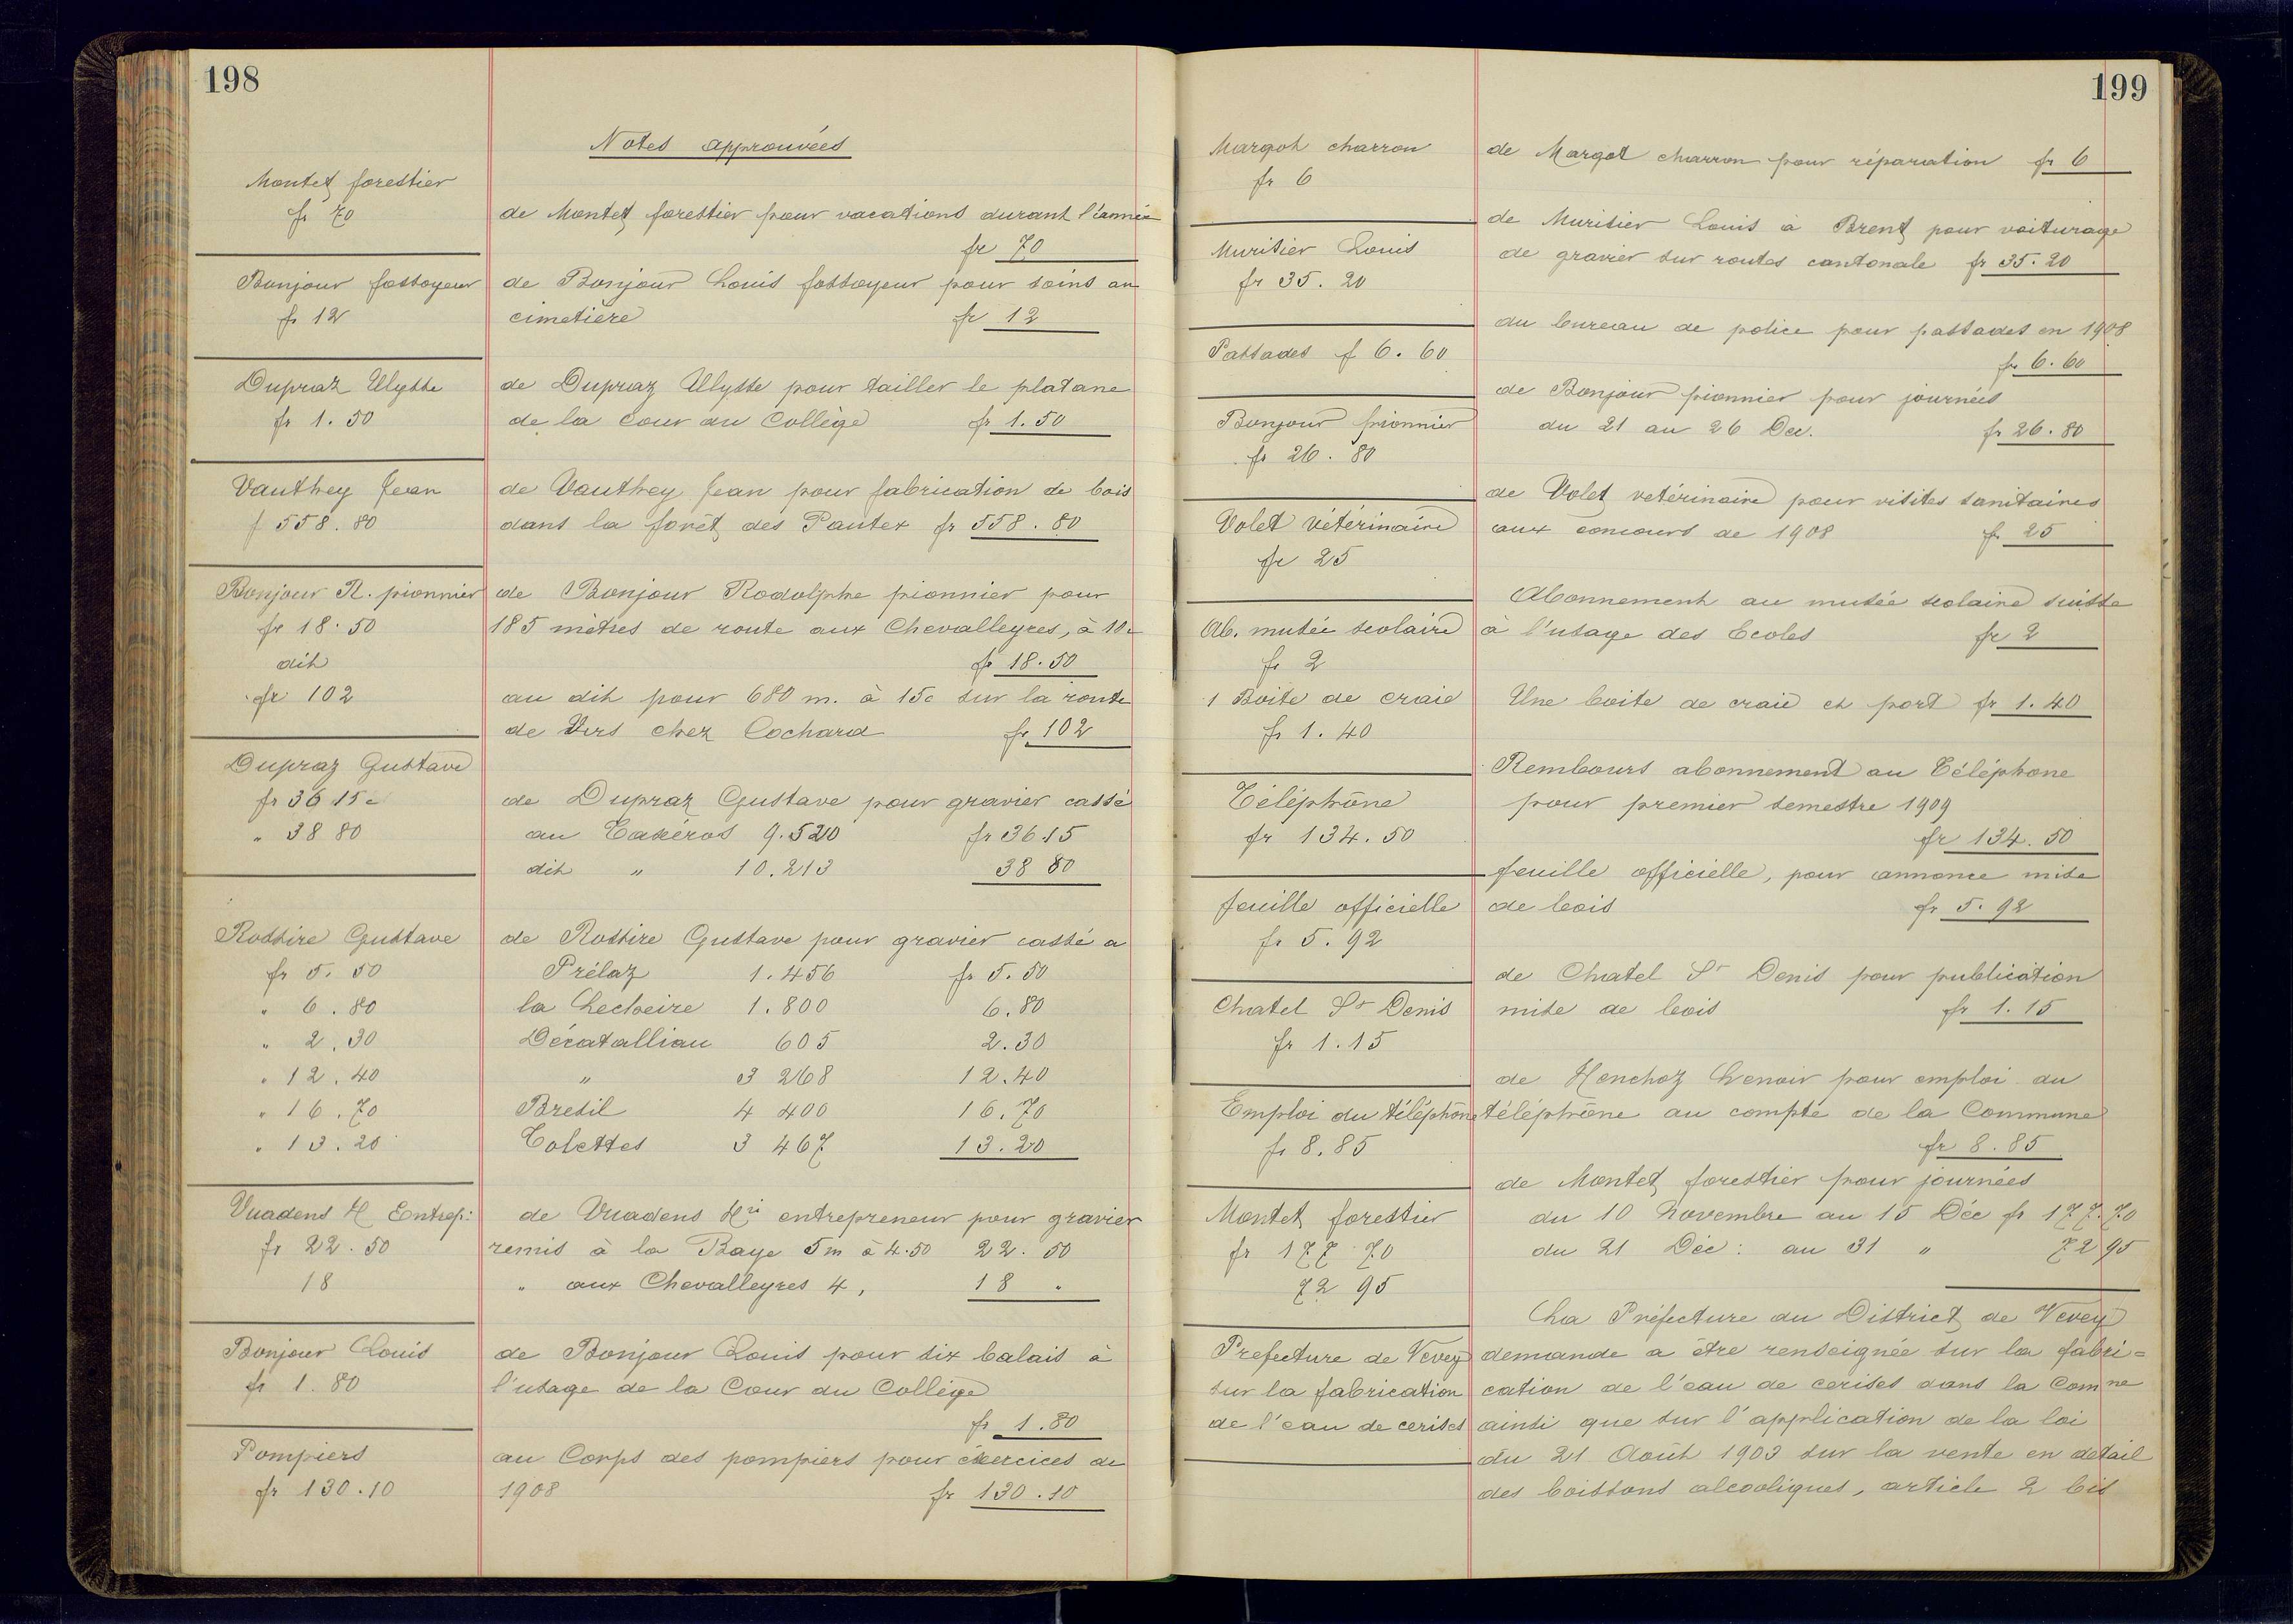 198
Notes approuvées
Montet forestier
fr 70
de Montet forestier pour vacations durant l'année
fr 70
Bonjour fossoyeur
fr 12
de Bonjour Louis fossoyeur pour soins au
cimetière fr 12
Dupraz Ulysse
fr 1.50
de Dupraz Ulysse pour tailler le platane
de la Cour du Collège fr 1.50
Vauthey Jean
f 558.80
de Vauthey Jean pour fabrication de bois
dans la forêt des Pautex fr 558.80
Bonjour R. pionnier
fr 18.50
dit
fr 102
de Bonjour Rodolphe pionnier pour
185 mètres de route aux Chevalleyres, à 10c
fr 18.50
au dit pour 680 m. à 15c sur la route
de Vers chez Cochard fr 102
Dupraz Gustave
fr 36 15c
" 38 80
de Dupraz Gustave pour gravier cassé
au 9.520 fr 36.15
dit " 10.213 38 80
Rossire Gustave
fr 5.50
" 6.80
" 2.30
" 12.40
" 16.70
" 13.20
de Rossire Gustave pour gravier cassé a
Prélaz 1.456 fr 5.50
la Lecheire 1.800 6.80
Décatalliau 605 2.30
" 3 268 12.40
Bresil 4 400 16.70
Colettes 3 467 13.20
Vuadens H Entrep:
fr 22.50
18
de Vuadens Hri entrepreneur pour gravier
remis à la Baye 5m à 4.50 22.50
" aux Chevalleyres 4, 18 "
Bonjour Louis
fr 1.80
de Bonjour Louis pour six balais à
l'usage de la Cour du Collège
fr 1.80
Pompiers
fr 130.10
au Corps des pompiers pour exercices de
1908 fr 130.10
199
Margot charron
fr 6
de Margot charron pour réparation fr 6
Muritier Louis
fr 35.20
de Muritier Louis à Brent pour voiturage
de gravier sur routes cantonale fr 35.20
Passades f 6.60
du bureau de police pour passades en 1908
fr 6.60
Bonjour pionnier
fr 26.80
de Bonjour pionnier pour journées
du 21 au 26 Dec. fr 26.80
Volet vétérinaire
fr 25
de Volet vetérinaire pour visites sanitaires
aux concours de 1908 fr 25
Ab. musée scolaire
fr 2
Abonnement au musée scolaire suisse
à l'usage des Ecoles fr 2
1 Boite de craie
fr 1.40
Une boite de craie et port fr 1.40
Téléphone
fr 134.50
Rembours abonnement au Téléphone
pour premier semestre 1909
fr 134.50
feuille officielle
fr 5.92
feuille officielle, pour annonce mise
de bois fr 5.92
Chatel St Denis
fr 1.15
de Chatel St Denis pour publication
mise de bois fr 1.15
Emploi du téléphone
fr 8.85
de Henchoz Lenoir pour emploi du
téléphone au compte de la Commune
fr 8.85
Montet forestier
fr 177 70
72 95
de Montet forestier pour journées
du 10 Novembre au 15 Déc fr 177.70
du 21 Déc: au 31 " 72 95
Prefecture de Vevey
sur la fabrication
de l'eau de cerises
La Préfecture du District de Vevey
demande a être renseignée sur la fabri=
cation de l'eau de cerises dans la Comne
ainsi que sur l'application de la loi
du 21 Août 1903 sur la vente en detail
des boissons alcooliques, article 2 bis